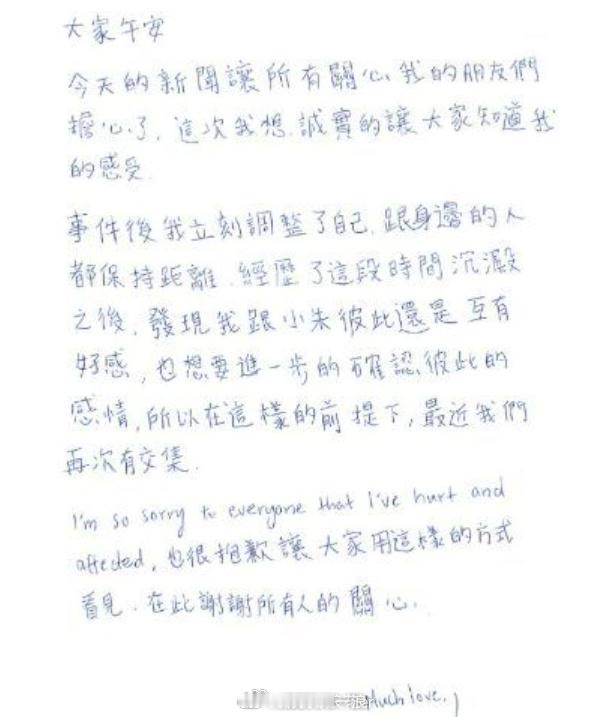 大家午安
今天的新聞讓所有關心我的朋友們
擔心了，這次我想誠實的讓大家知道我
的感受.
事件後我立刻調整了自己，跟身邊的人
都保持距離．經歷了這段時間沉澱
之後，發現我跟小朱彼此還是互有
好感，也想要進一步的確認彼此的
感情，所以在這樣的前提下，最近我們
再次有交集．
I'm so sorry to everyone that I've hurt and
affected, 也很抱歉讓大家用這樣的方式
看見．在此謝謝所有人的關心．
Much love,